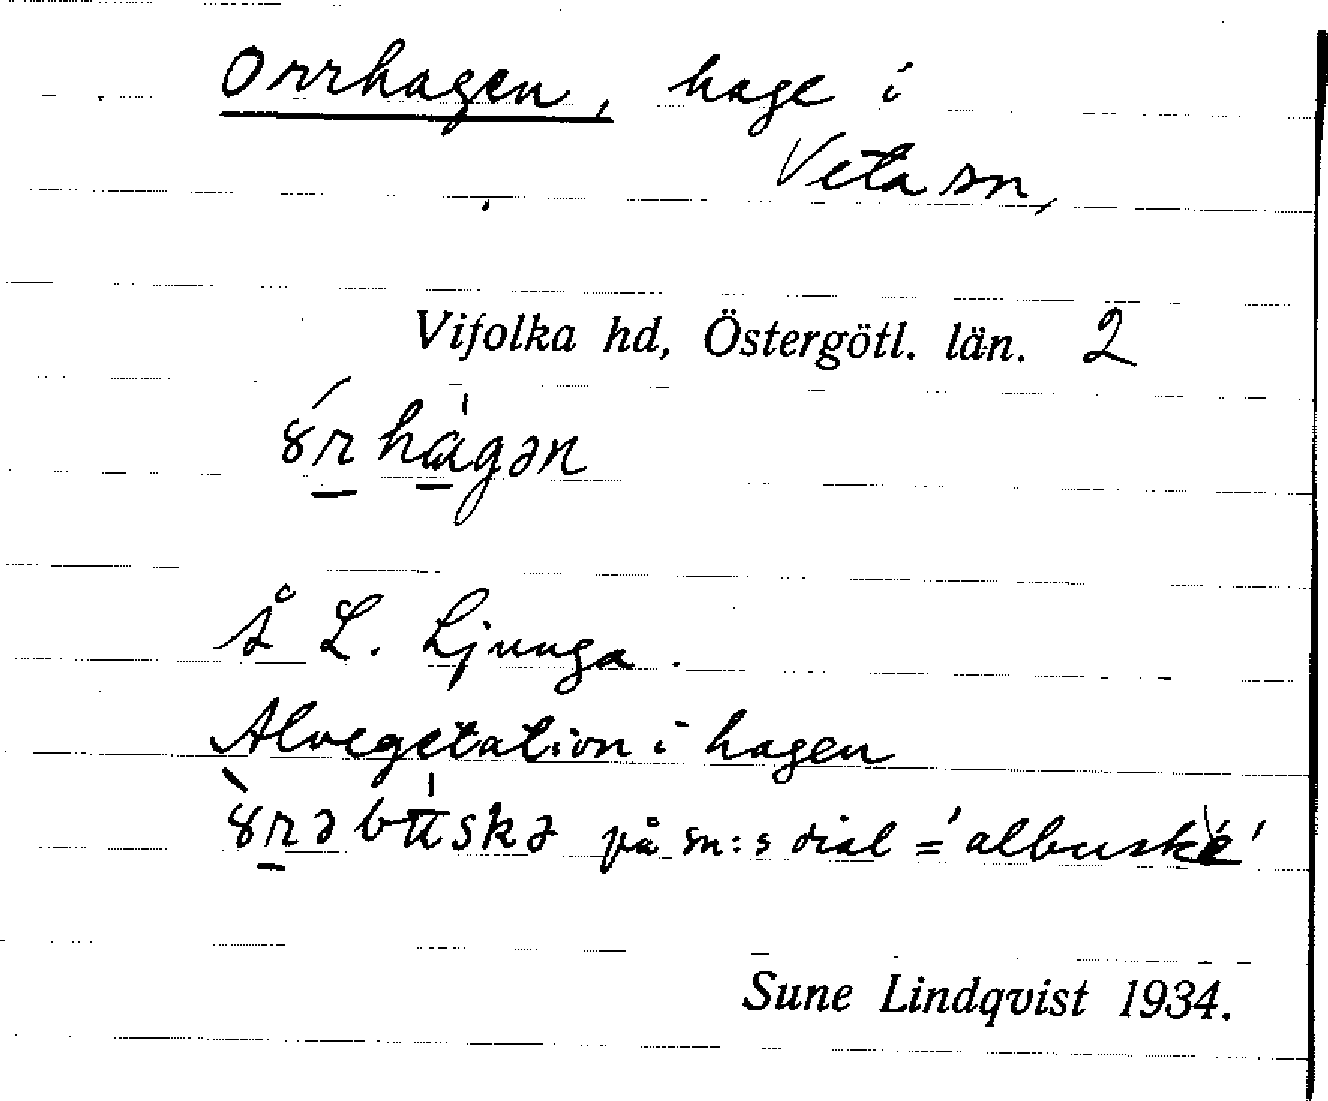 Orrhagen, hage i
Veta sn,
Vifolka hd, Östergötl. län. 2
ȣ́r hàgən
Å L. Ljunga.
Alvegetation i hagen
ȣ̀rəbuskə på sn:s dial = 'albuske'
Sune Lindqvist 1934.